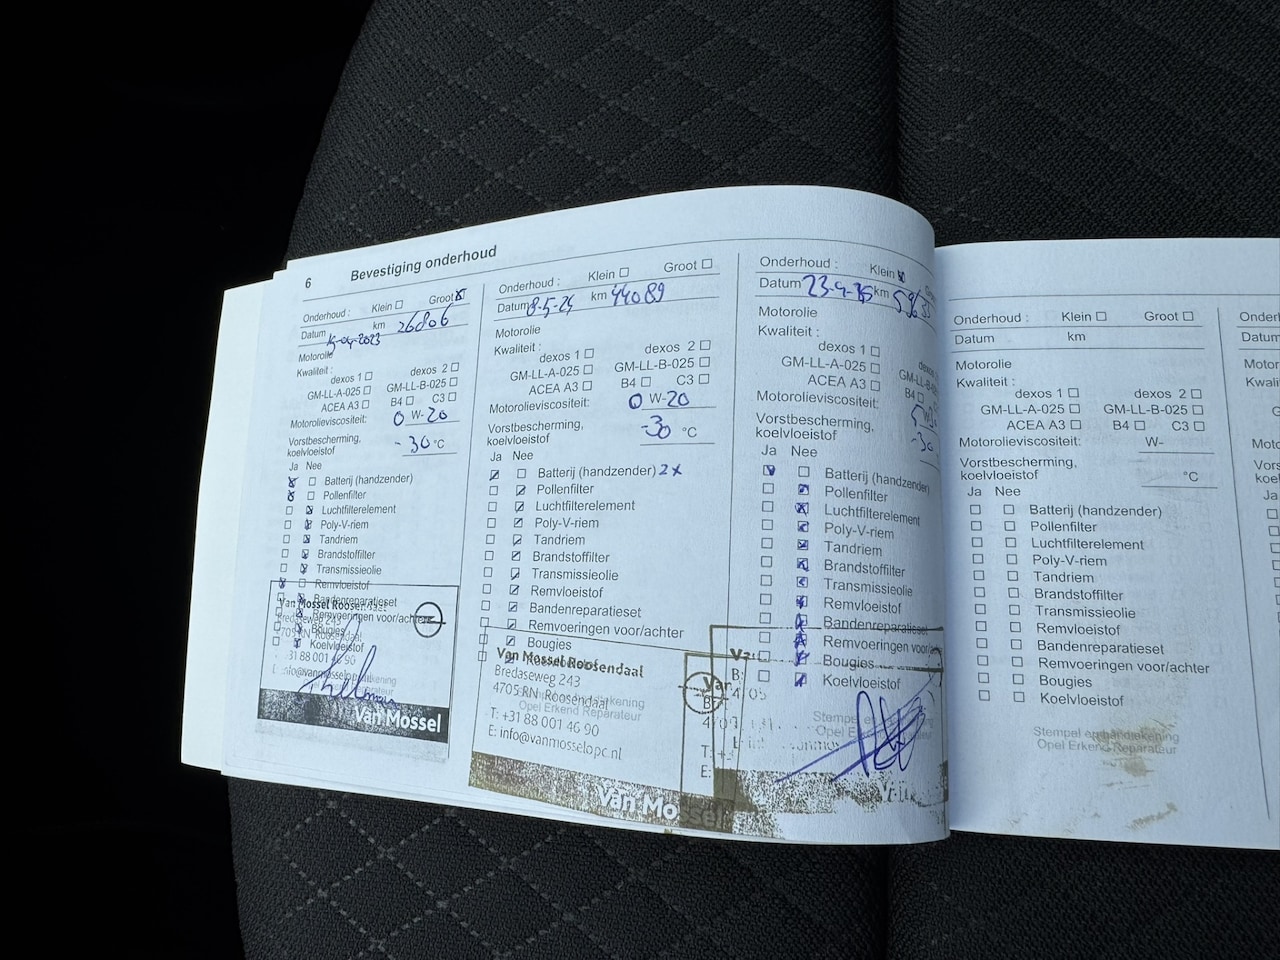 6 Bevestiging onderhoud
Onderhoud : Klein Groot
Datum 15-04-2023 km 26806
Motorolie
Kwaliteit :
dexos 1 dexos 2
GM-LL-A-025 GM-LL-B-025
ACEA A3 B4 C3
Motorolieviscositeit: 0 W-20
Vorstbescherming,
koelvloeistof -30 °C
Ja Nee
Batterij (handzender)
Pollenfilter
Luchtfilterelement
Poly-V-riem
Tandriem
Brandstoffilter
Transmissieolie
Remvloeistof
Bandenreparatieset
Remvoeringen voor/achter
Bougies
Koelvloeistof
Van Mossel Roosendaal
Bredaseweg 243
Van Mossel
Onderhoud : Klein Groot
Datum 8-5-24 km 44089
Motorolie
Kwaliteit :
dexos 1 dexos 2
GM-LL-A-025 GM-LL-B-025
ACEA A3 B4 C3
Motorolieviscositeit: 0 W-20
Vorstbescherming,
koelvloeistof -30 °C
Ja Nee
Batterij (handzender) 2x
Pollenfilter
Luchtfilterelement
Poly-V-riem
Tandriem
Brandstoffilter
Transmissieolie
Remvloeistof
Bandenreparatieset
Remvoeringen voor/achter
Bougies
Van Mossel Roosendaal
Bredaseweg 243
4705 RN Roosendaal
Opel Erkend Reparateur
T: +31 88 001 46 90
E: info@vanmosselopc.nl
Van Mossel
Onderhoud : Klein
Datum 23-4-25 km
Motorolie
Kwaliteit :
dexos 1
GM-LL-A-025
ACEA A3 B4
Motorolieviscositeit:
Vorstbescherming,
koelvloeistof -30
Ja Nee
Batterij (handzender)
Pollenfilter
Luchtfilterelement
Poly-V-riem
Tandriem
Brandstoffilter
Transmissieolie
Remvloeistof
Bandenreparatieset
Remvoeringen voor/
Bougies
Koelvloeistof
Onderhoud : Klein Groot
Datum km
Motorolie
Kwaliteit :
dexos 1 dexos 2
GM-LL-A-025 GM-LL-B-025
ACEA A3 B4 C3
Motorolieviscositeit: W-
Vorstbescherming,
koelvloeistof °C
Ja Nee
Batterij (handzender)
Pollenfilter
Luchtfilterelement
Poly-V-riem
Tandriem
Brandstoffilter
Transmissieolie
Remvloeistof
Bandenreparatieset
Remvoeringen voor/achter
Bougies
Koelvloeistof
Stempel en handtekening
Opel Erkend Reparateur
Datum
Ja